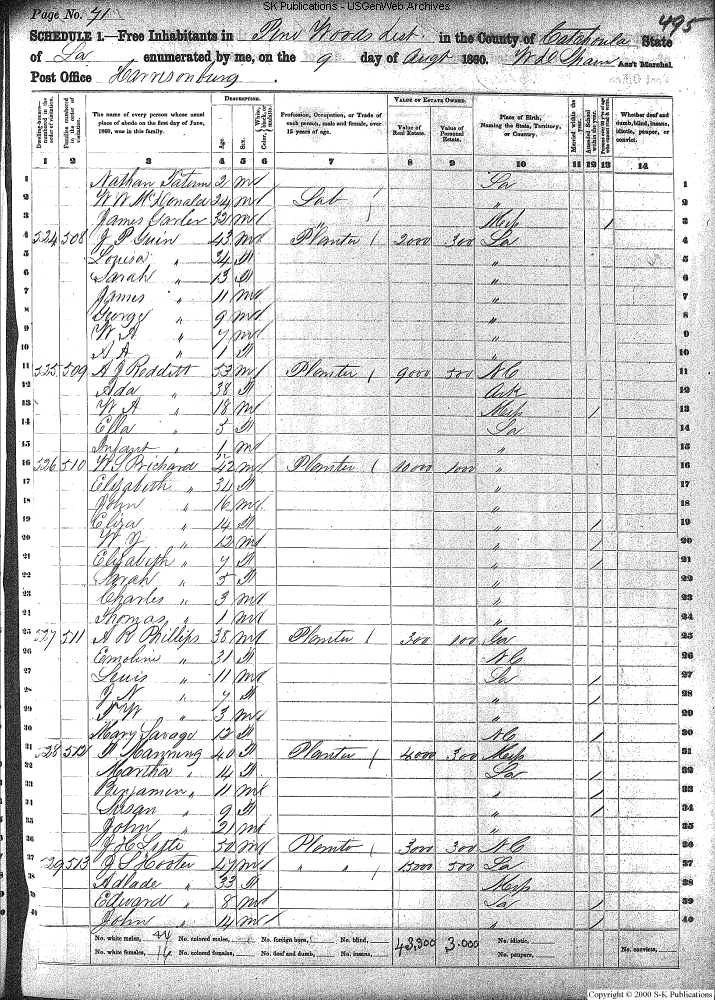 SK Publications - USGenWeb Archives
Page No. 71
495
SCHEDULE 1.—Free Inhabitants in Pine Woods Dist. in the County of Catahoula State
of La enumerated by me, on the 9 day of Augt 1860. Ass't Marshal
Post Office Harrisonburg.
Dwelling-houses—numbered in the order of visitation.
Families numbered in the order of visitation.
The name of every person whose usual place of abode on the first day of June, 1860, was in this family.
DESCRIPTION.
Age.
Sex.
Color, White, black, or mulatto.
Profession, Occupation, or Trade of each person, male and female, over 15 years of age.
VALUE OF ESTATE OWNED.
Value of Real Estate.
Value of Personal Estate.
Place of Birth, Naming the State, Territory, or Country.
Married within the year.
Attended School within the year.
Whether deaf and dumb, blind, insane, idiotic, pauper, or convict.
1 2 3 4 5 6 7 8 9 10 11 12 13 14
1 Nathan Tatum 2 m La 1
2 W W McDonald 24 m Lab " 2
3 James 32 m " Miss / 3
4 524 508 J P Guin 43 m Planter 2000 300 La 4
5 Louisa " 34 f " 5
6 Sarah " 13 f " 6
7 James " 11 m " 7
8 George " 9 m " 8
9 W A " 7 m " 9
10 " 1 f " 10
11 525 509 A J Redditt 53 m Planter 9000 500 N C 11
12 Ada " 38 f Ark 12
13 W A " 18 m Miss / 13
14 Ella " 5 f La 14
15 Infant " 1 m " 15
16 526 510 W S Prichard 42 m Planter 10000 1000 " 16
17 Elizabeth " 34 f " 17
18 John " 16 m " 18
19 Eliza " 14 f " / 19
20 " 12 m " / 20
21 Elizabeth " 7 f " / 21
22 Sarah " 5 f " 22
23 Charles " 3 m " 23
24 Thomas " 1 m " 24
25 527 511 A R Phillips 38 m Planter 300 100 25
26 Emoline " 31 f N C 26
27 Louis " 11 m La / 27
28 " 7 " / 28
29 " 3 m " 29
30 Mary Savage 12 f N C / 30
31 528 512 Manning 40 f Planter 4000 300 Miss 31
32 Martha " 14 f La / 32
33 Benjamin " 11 m " / 33
34 Susan " 9 f " / 34
35 John " 21 m " 35
36 50 m Planter 3000 300 N C 36
37 529 513 J S Hooter 47 m " " 15000 500 La 37
38 Adlade " 33 f Miss 38
39 Edward " 8 m La / 39
40 John " 14 m " / 40
No. white males, 24 No. colored males, No. foreign born, No. blind, 43,300 3.000 No. idiotic,
No. white females, 16 No. colored females, No. deaf and dumb, No. insane, No. paupers, No. convicts,
Copyright © 2000 S-K Publications